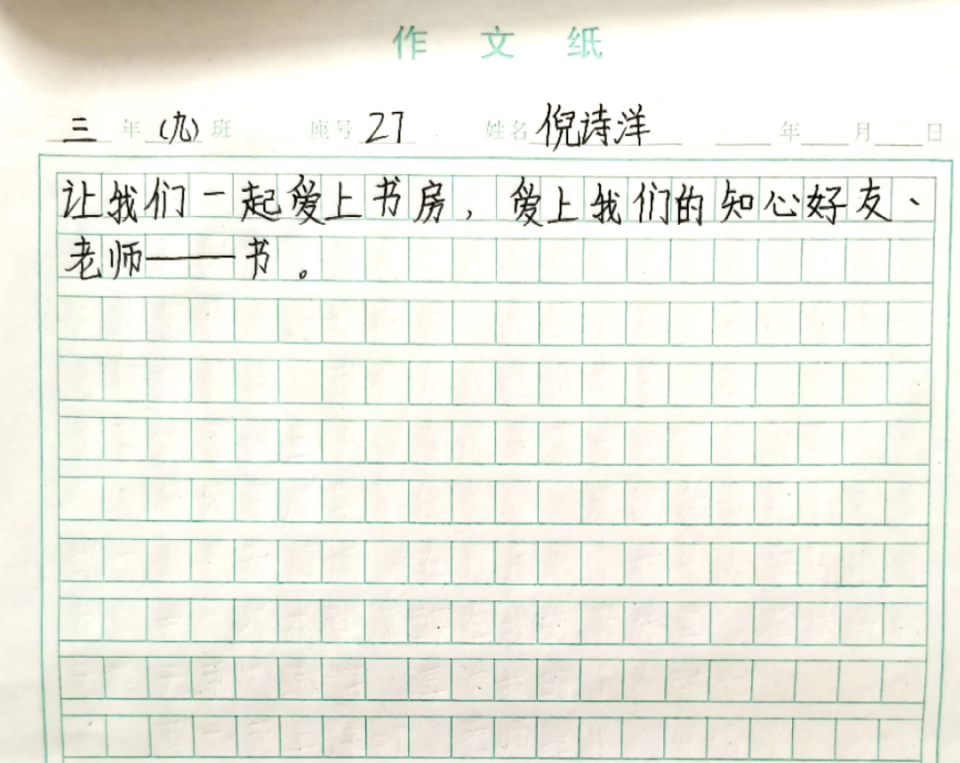 作文纸
三年(九)班 座号27 姓名倪诗洋 年 月 日
让我们一起爱上书房，爱上我们的知心好友、
老师——书。